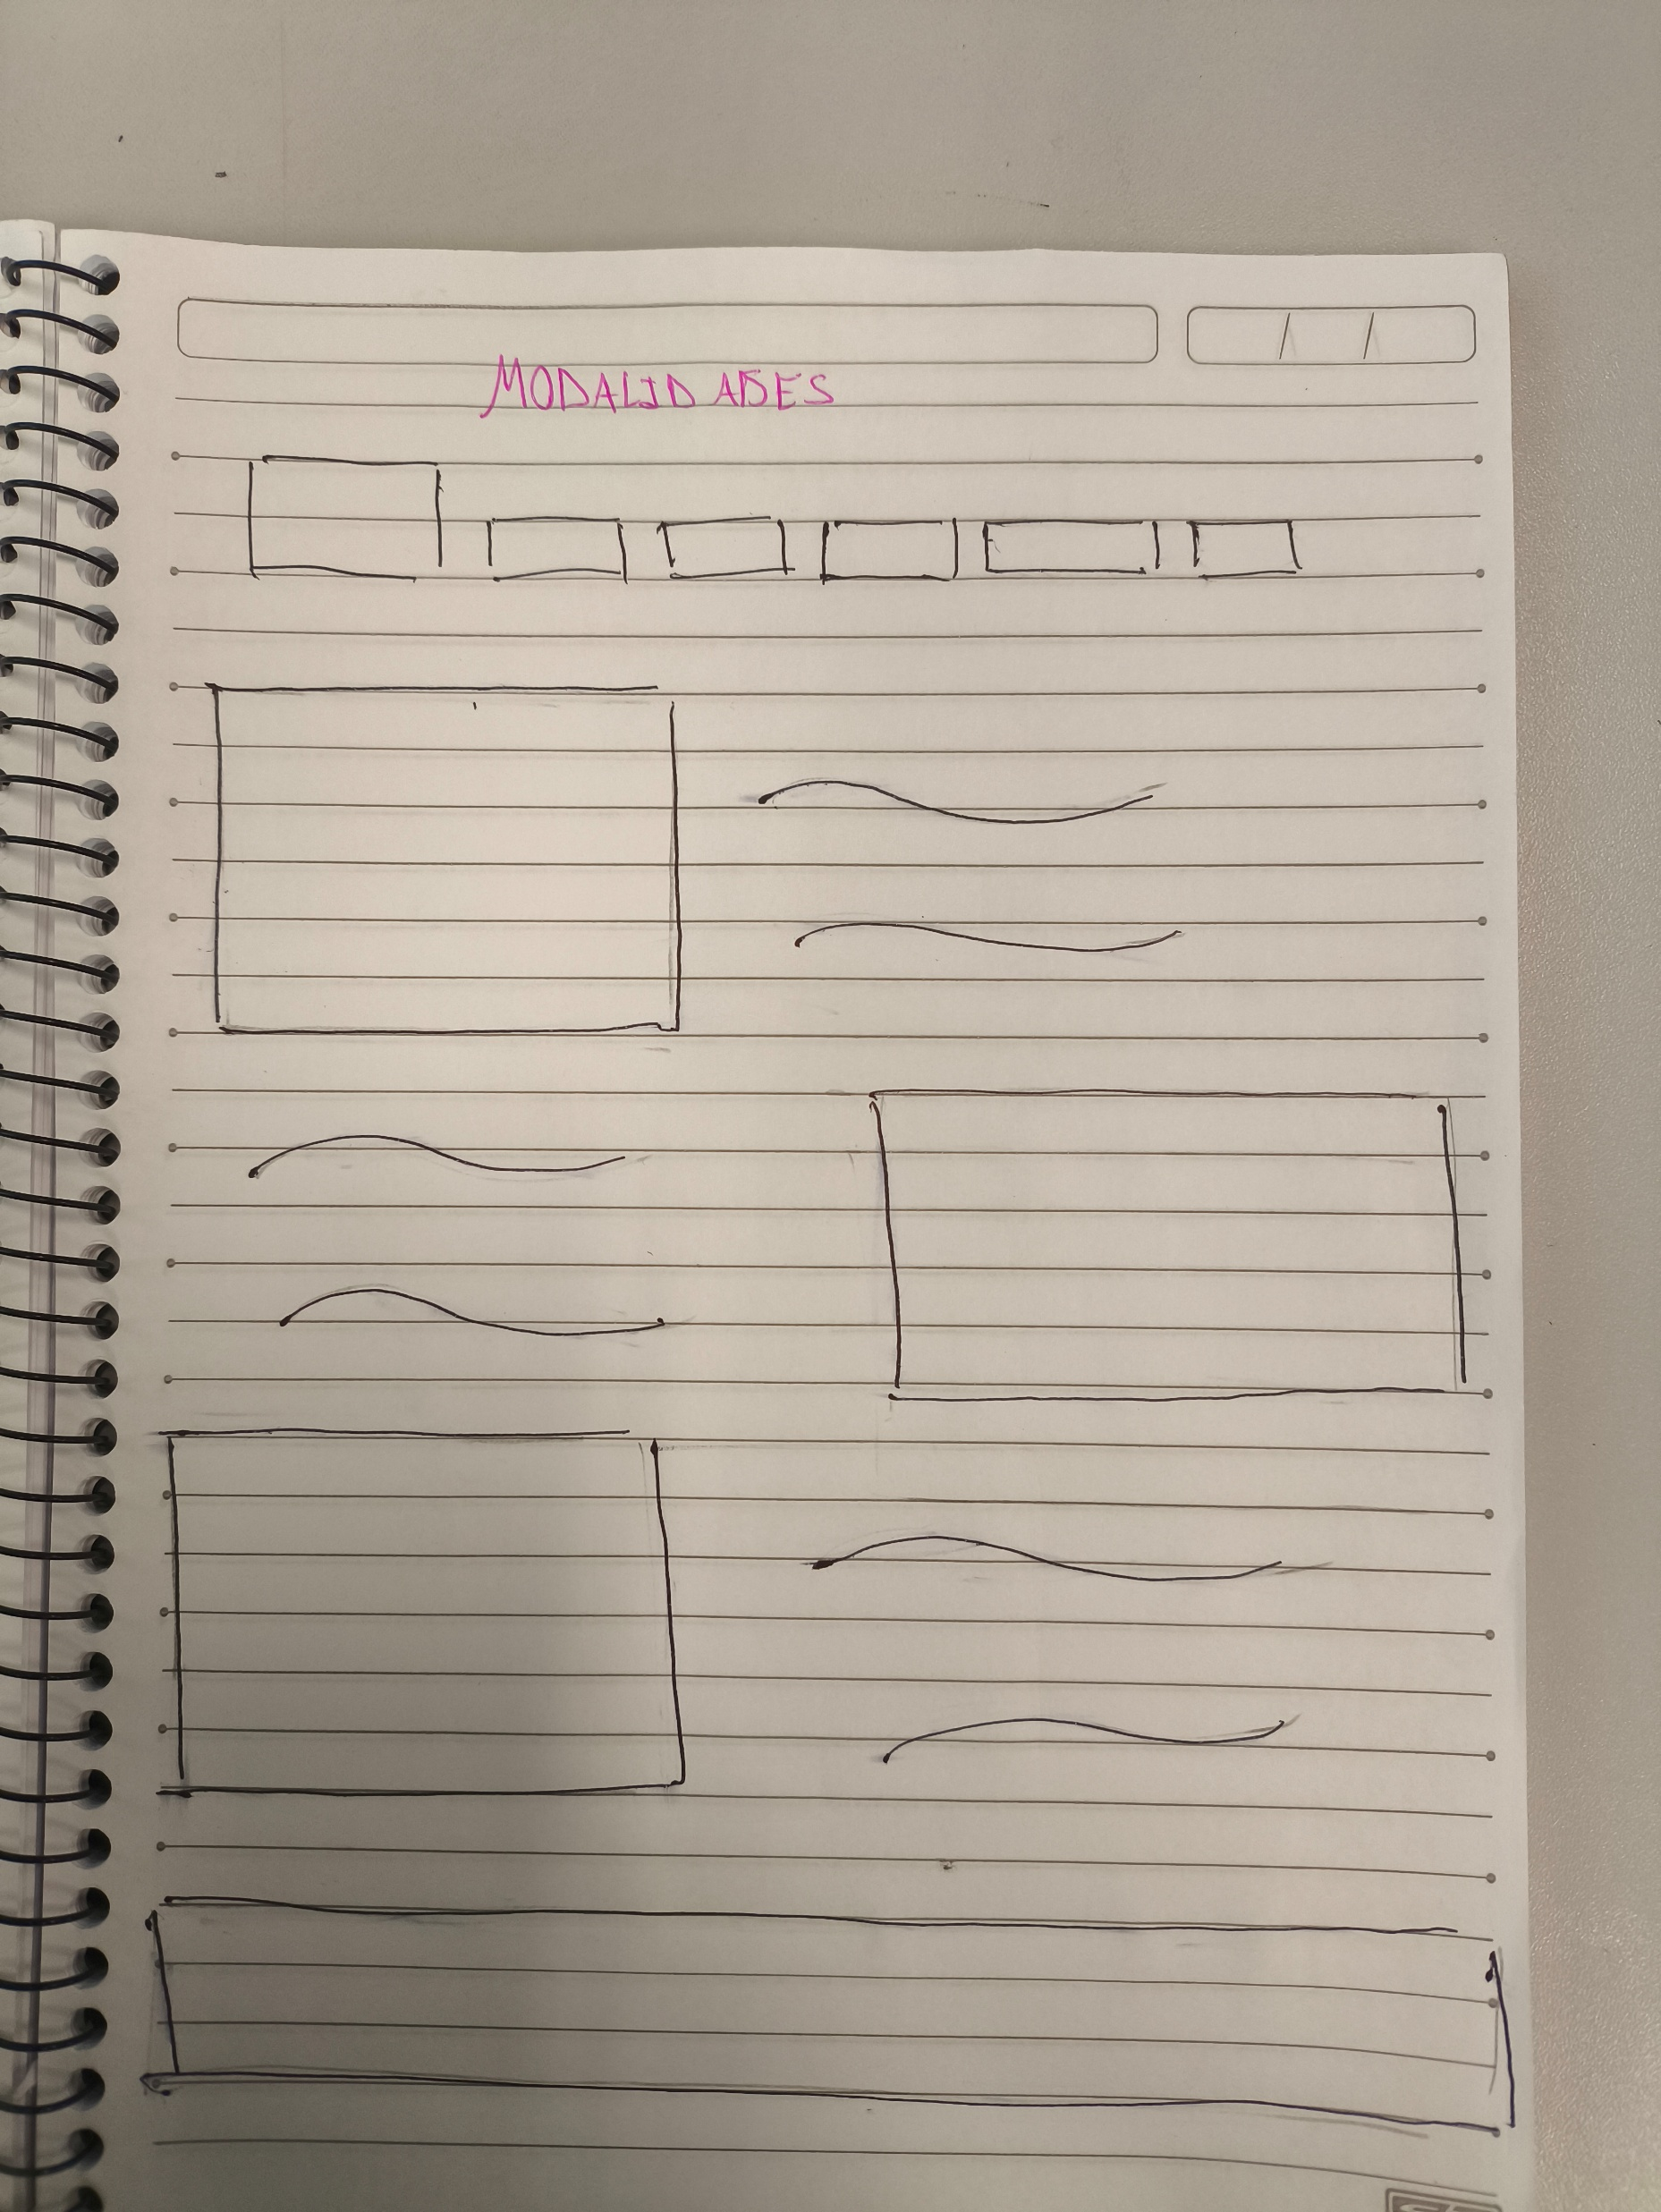 MODALIDADES
/ /